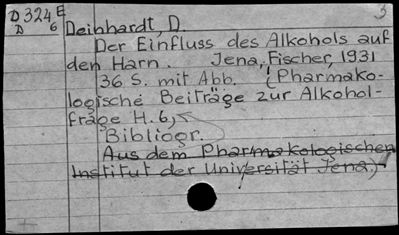 D 324 E
D 6
3
Deinhardt, D.
Der Einfluss des Alkohols auf
den Harn. Jena, Fischer, 1931
36 S. mit Abb. (Pharmako-
logische Beiträge zur Alkohol-
frage H. 6)
Bibliogr.
Aus dem Pharmakologischen
Institut der Universität Jena.)